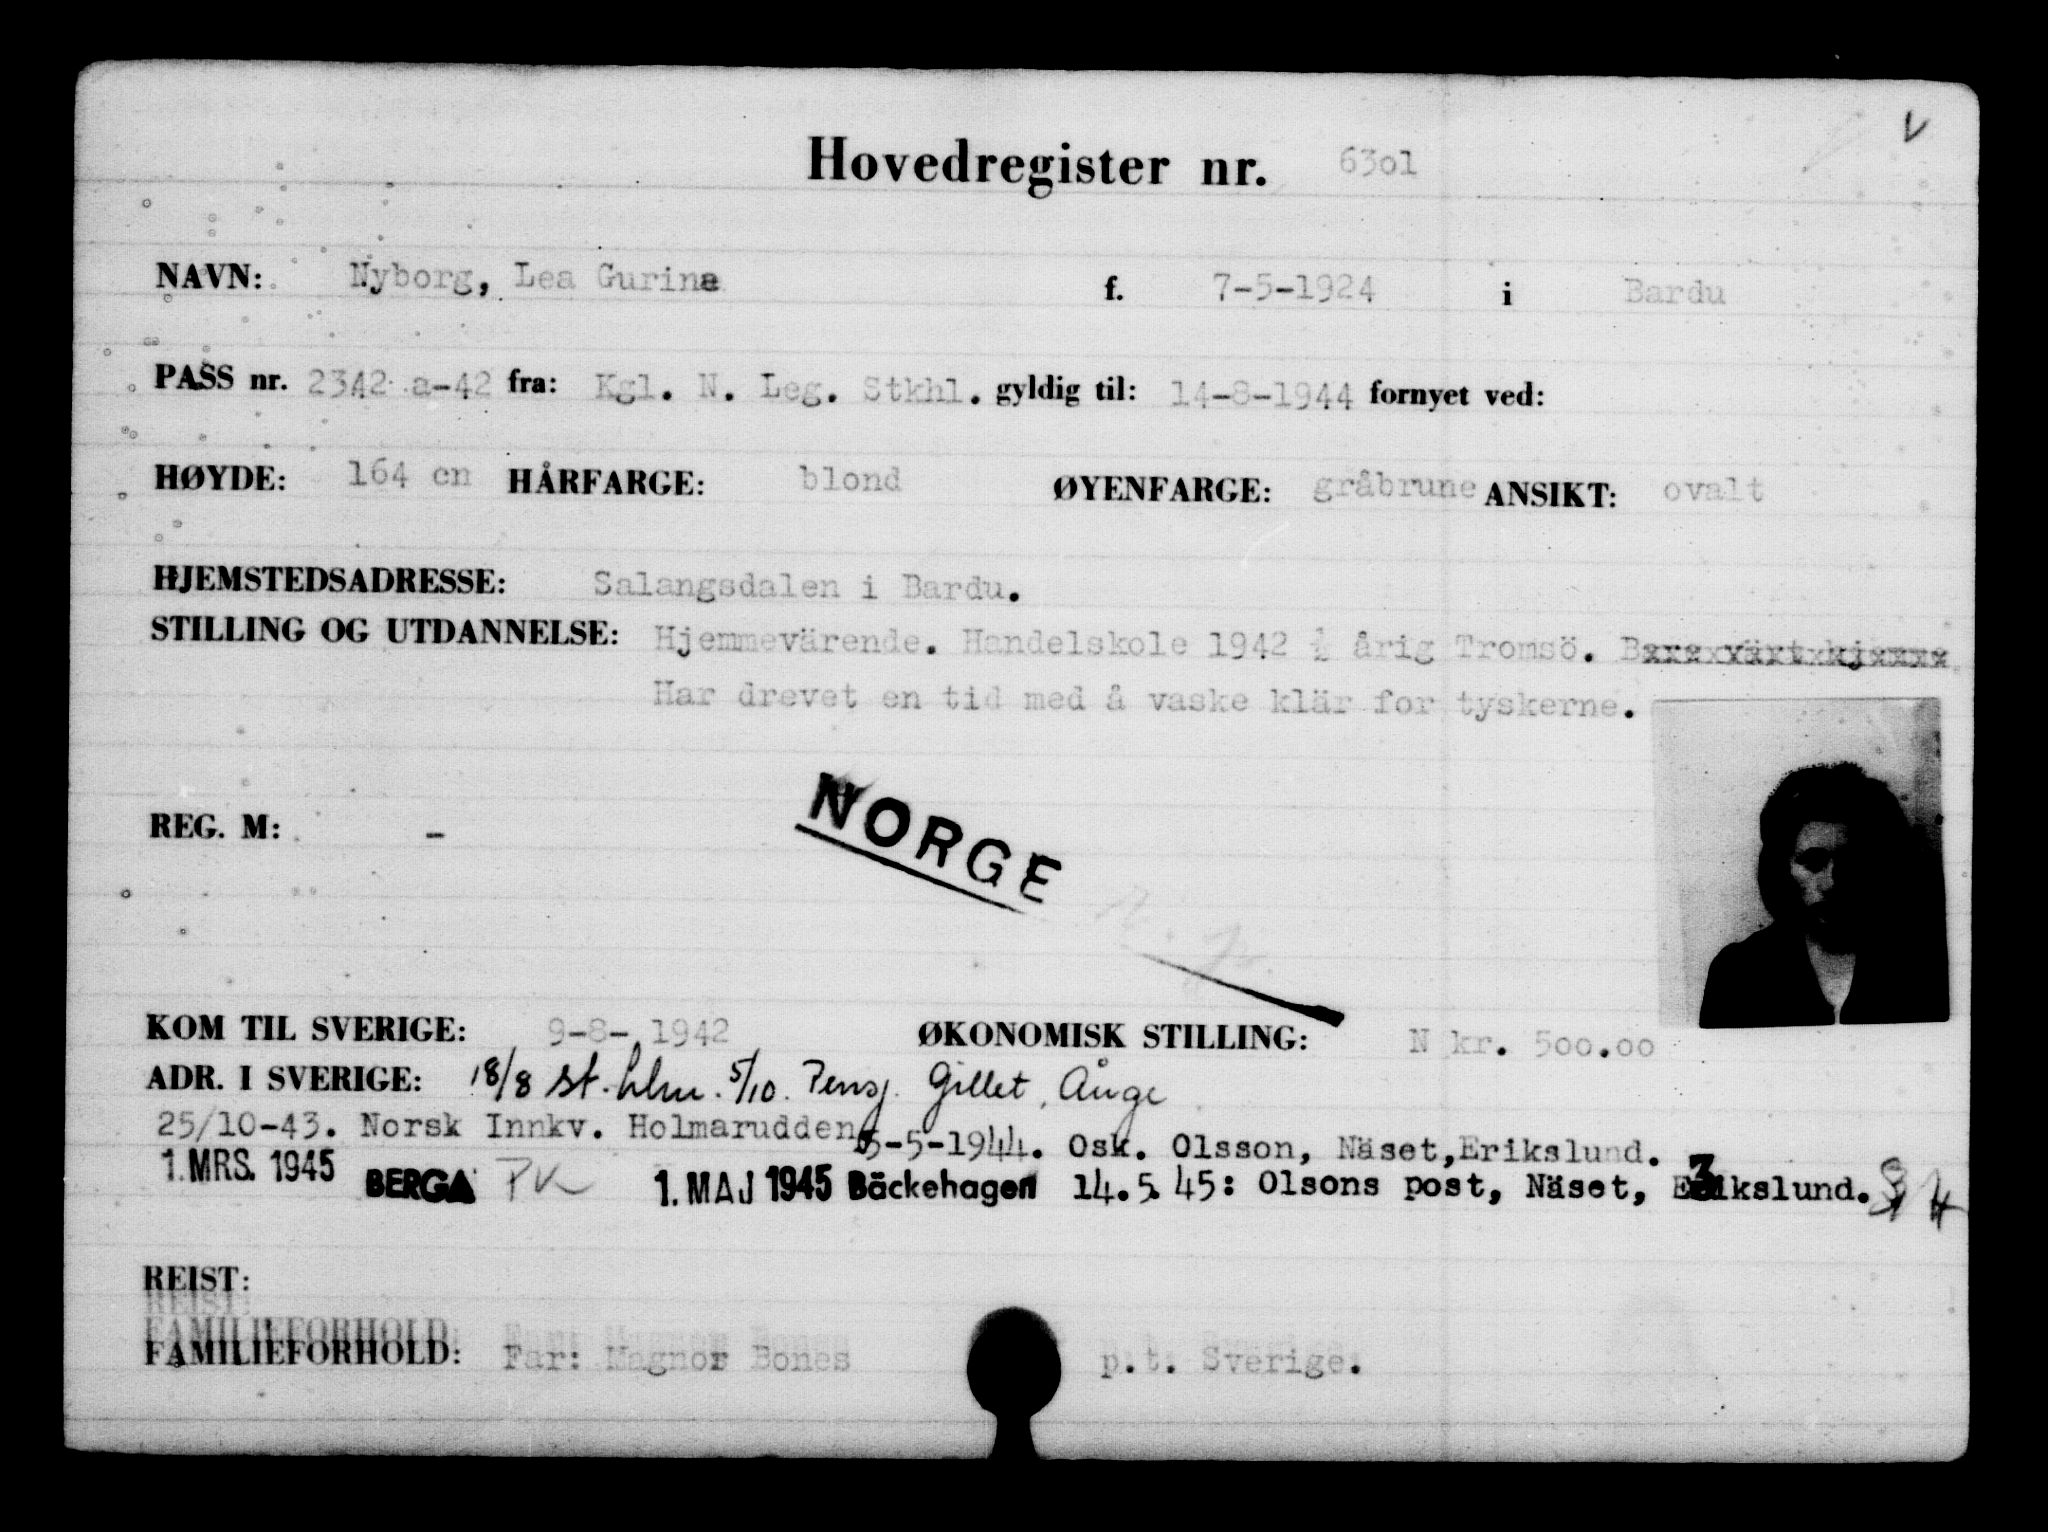 V
Hovedregister nr. 63o1
NAVN: Nyborg, Lea Gurine f. 7-5-1924 i Bardu
PASS nr. 2342 a-42 fra: Kgl. N. Leg. Stkhl. gyldig til: 14-8-1944 fornyet ved:
HØYDE: 164 cm HÅRFARGE: blond ØYENFARGE: gråbrune ANSIKT: ovalt
HJEMSTEDSADRESSE: Salangsdalen i Bardu.
STILLING OG UTDANNELSE: Hjemmevärende. Handelskole 1942 ½ årig Tromsö.
Har drevet en tid med å vaske klär for tyskerne.
REG. M: -
NORGE
KOM TIL SVERIGE: 9-8- 1942 ØKONOMISK STILLING: N kr. 5oo.oo
ADR. I SVERIGE: 18/8 St.hlm. 5/10. Pensj. Gillet, Ånge
25/10-43. Norsk Innkv. Holmarudden 5-5-1944. Osk. Olsson, Näset,Erikslund.
1. MRS. 1945 BERGA PK 1. MAJ 1945 Bäckehagen 14.5.45: Olsons post, Näset, Erikslund.
REIST:
REIST:
FAMILIEFORHOLD: Far: Magnor Bones
FAMILIEFORHOLD: Far: Magnor Bones p.t. Sverige.